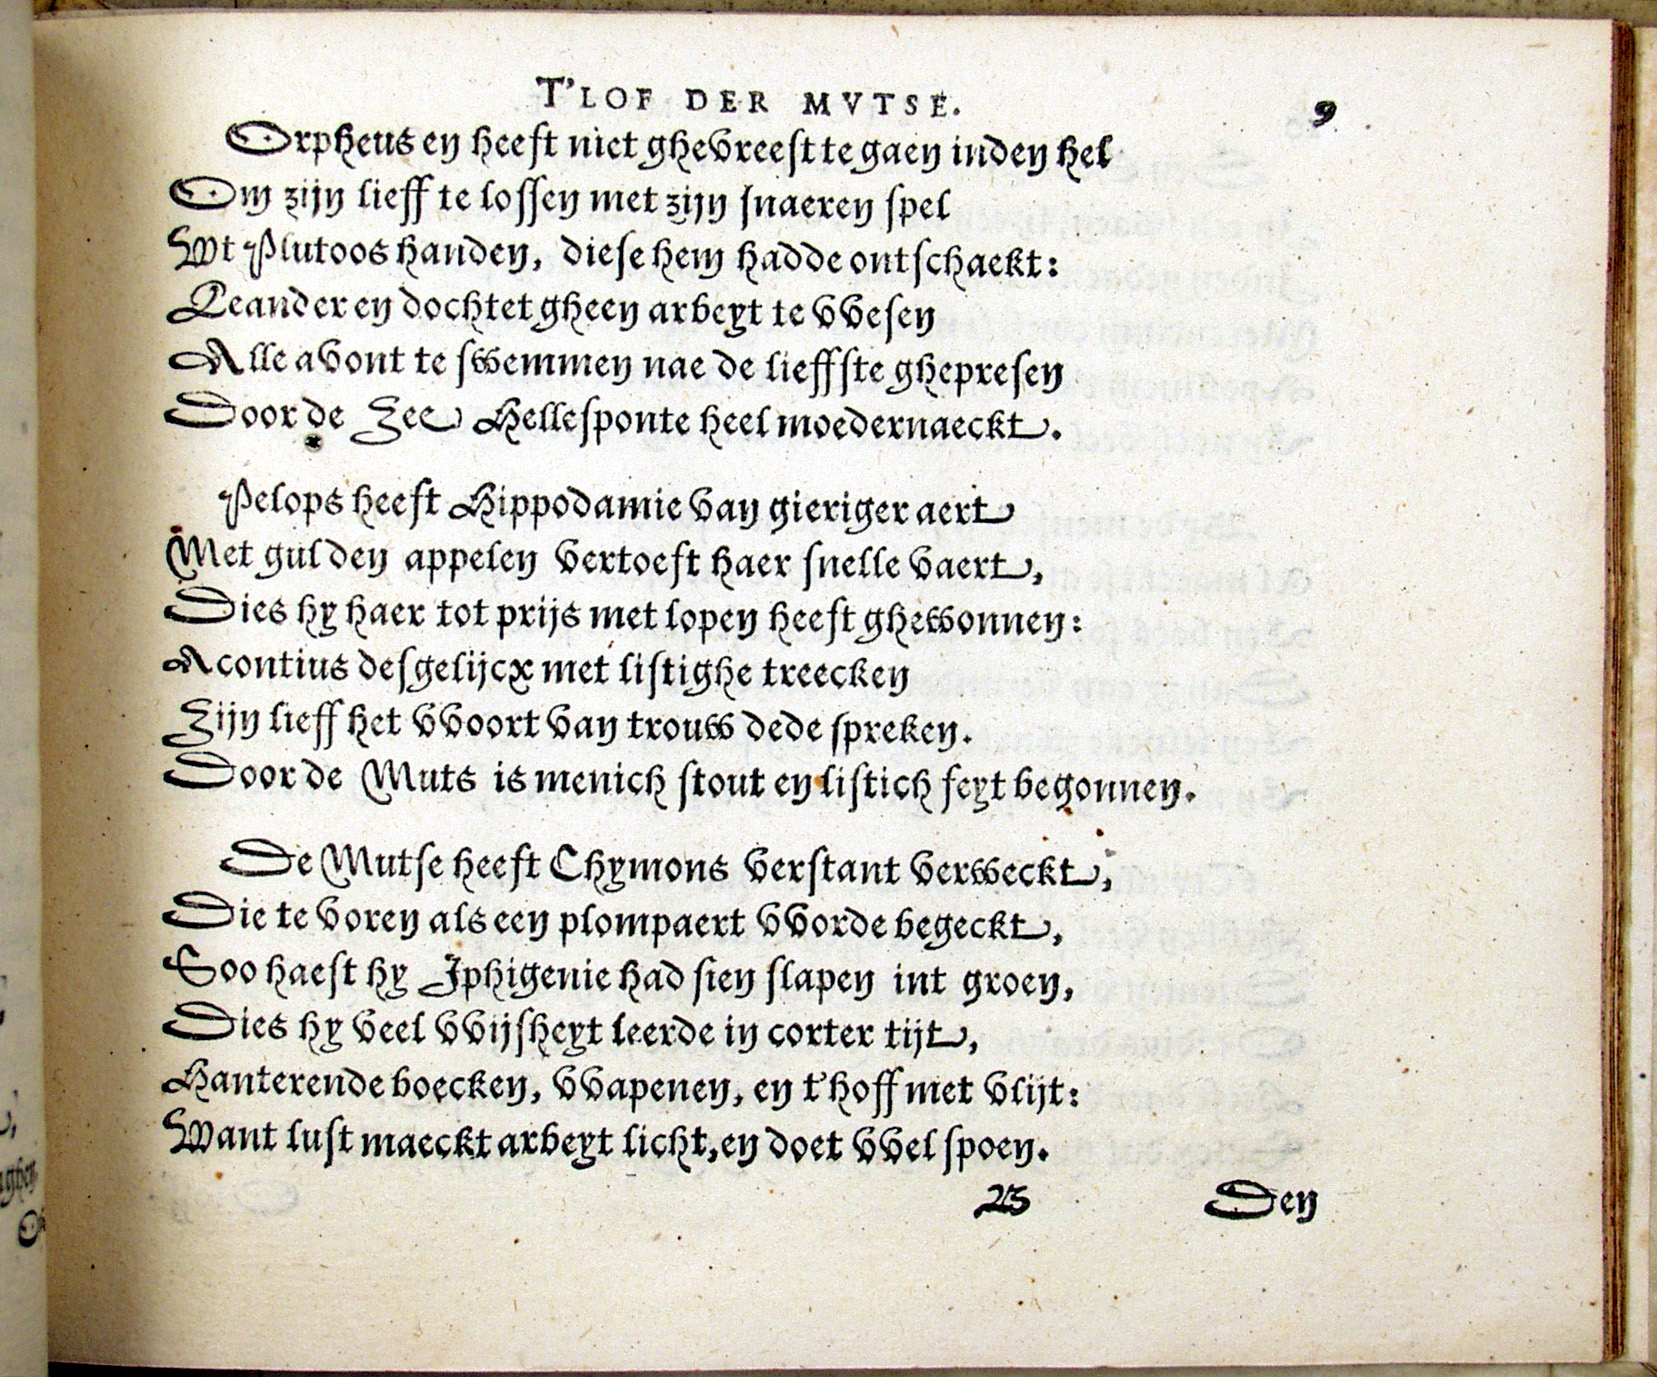 T'LOF DER MVTSE. 9
Orpheus en heeft niet ghevreest te gaen inden hel
Om zijn lieff te lossen met zijn snaeren spel
Wt Plutoos handen, diese hem hadde ontschaekt:
Leander en dochtet gheen arbeyt te vvesen
Alle avont te swemmen nae de lieffste ghepresen
Door de Zee Hellesponte heel moedernaeckt.
Pelops heeft Hippodamie van gieriger aert
Met gulden appelen vertoeft haer snelle vaert,
Dies hy haer tot prijs met lopen heeft ghewonnen:
Acontius desgelijcx met listighe treecken
Zijn lieff het vvoort van trouw dede spreken.
Door de Muts is menich stout en listich feyt begonnen.
De Mutse heeft Chymons verstant verweckt,
Die te voren als een plompaert vvorde begeckt,
Soo haest hy Iphigenie had sien slapen int groen,
Dies hy veel vvijsheyt leerde in corter tijt,
Hanterende boecken, vvapenen, en t'hoff met vlijt:
Want lust maeckt arbeyt licht, en doet vvel spoen.
B Den